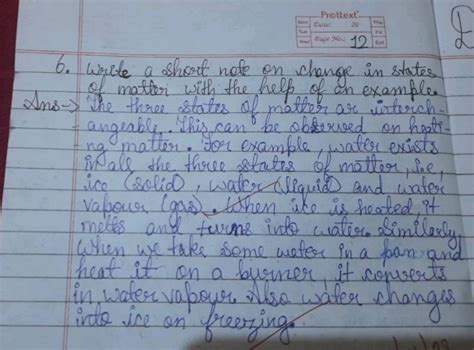 Prottext
Mon Tue Wed Date: 20 Thu Fri Sat
Page No.: 12
6. Write a short note on change in states
of matter with the help of an example.
Ans-> The three states of matter ar interch-
angeable. This can be observed on heati-
ng matter. For example, water exists
in all the three states of matter, i.e,
ice (solid), water (liquid) and water
vapour (gas). When ice is heated, it
melts and turns into water. Similarly,
when we take some water in a pan and
heat it on a burner it converts
in water vapour. Also water changes
into ice on freezing.